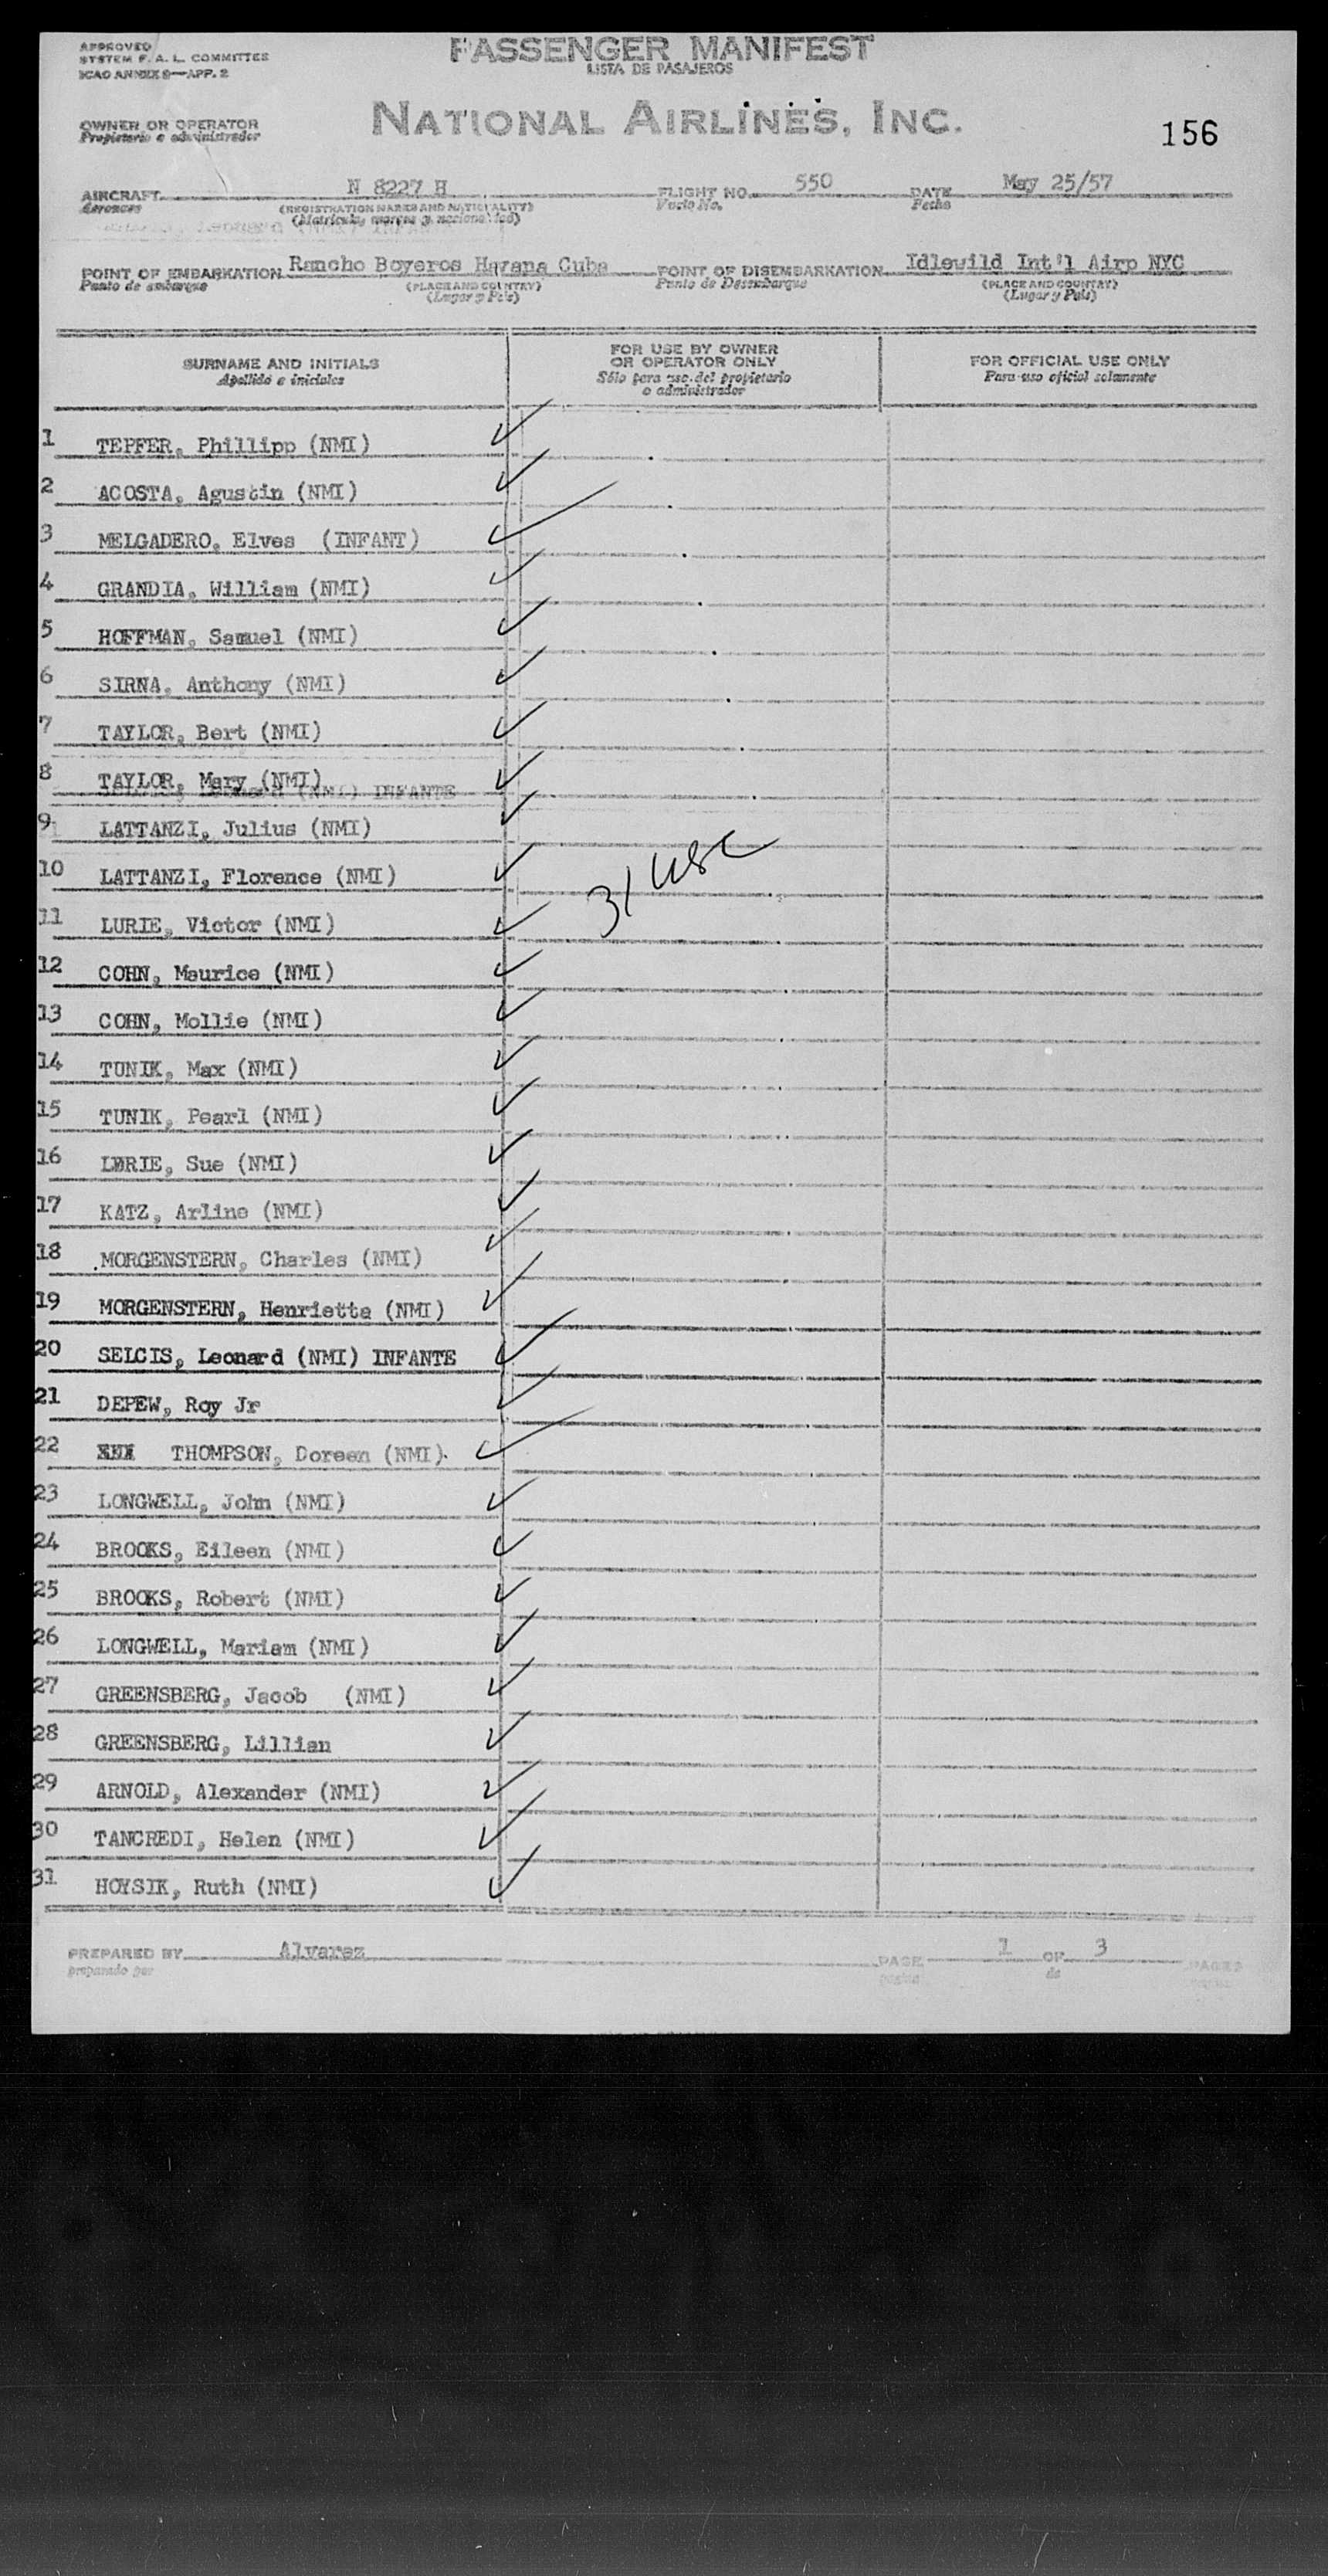 APPROVED
SYSTEM F. A. L. COMMITTEE
ICAO ANNEX 9—APP. 2
PASSENGER MANIFEST
LISTA DE PASAJEROS
OWNER OR OPERATOR
Propietario o administrador
NATIONAL AIRLINES, INC.
156
AIRCRAFT N 8227 H FLIGHT NO. 550 DATE May 25/57
Aeronave (REGISTRATION MARKS AND NATIONALITY) Vuelo No. Fecha
(Matrícula, marcas y nacionalidad)
POINT OF EMBARKATION Rancho Boyeros Havana Cuba POINT OF DISEMBARKATION Idlewild Int'l Airp NYC
Punto de embarque (PLACE AND COUNTRY) Punto de Desembarque (PLACE AND COUNTRY)
(Lugar y País) (Lugar y País)
SURNAME AND INITIALS
Apellido e iniciales
FOR USE BY OWNER
OR OPERATOR ONLY
Sólo para uso del propietario
o administrador
FOR OFFICIAL USE ONLY
Para uso oficial solamente
1 TEPFER, Phillipp (NMI)
2 ACOSTA, Agustin (NMI)
3 MELGADERO, Elves (INFANT)
4 GRANDIA, William (NMI)
5 HOFFMAN, Samuel (NMI)
6 SIRNA, Anthony (NMI)
7 TAYLOR, Bert (NMI)
8 TAYLOR, Mary (NMI)
9 LATTANZI, Julius (NMI)
10 LATTANZI, Florence (NMI)
31 USC
11 LURIE, Victor (NMI)
12 COHN, Maurice (NMI)
13 COHN, Mollie (NMI)
14 TUNIK, Max (NMI)
15 TUNIK, Pearl (NMI)
16 LURIE, Sue (NMI)
17 KATZ, Arline (NMI)
18 MORGENSTERN, Charles (NMI)
19 MORGENSTERN, Henrietta (NMI)
20 SELCIS, Leonard (NMI) INFANTE
21 DEPEW, Roy Jr
22 THOMPSON, Doreen (NMI)
23 LONGWELL, John (NMI)
24 BROOKS, Eileen (NMI)
25 BROOKS, Robert (NMI)
26 LONGWELL, Mariam (NMI)
27 GREENSBERG, Jacob (NMI)
28 GREENSBERG, Lillian
29 ARNOLD, Alexander (NMI)
30 TANCREDI, Helen (NMI)
31 HOYSIK, Ruth (NMI)
PREPARED BY Alvarez PAGE 1 OF 3 PAGES
preparado por de